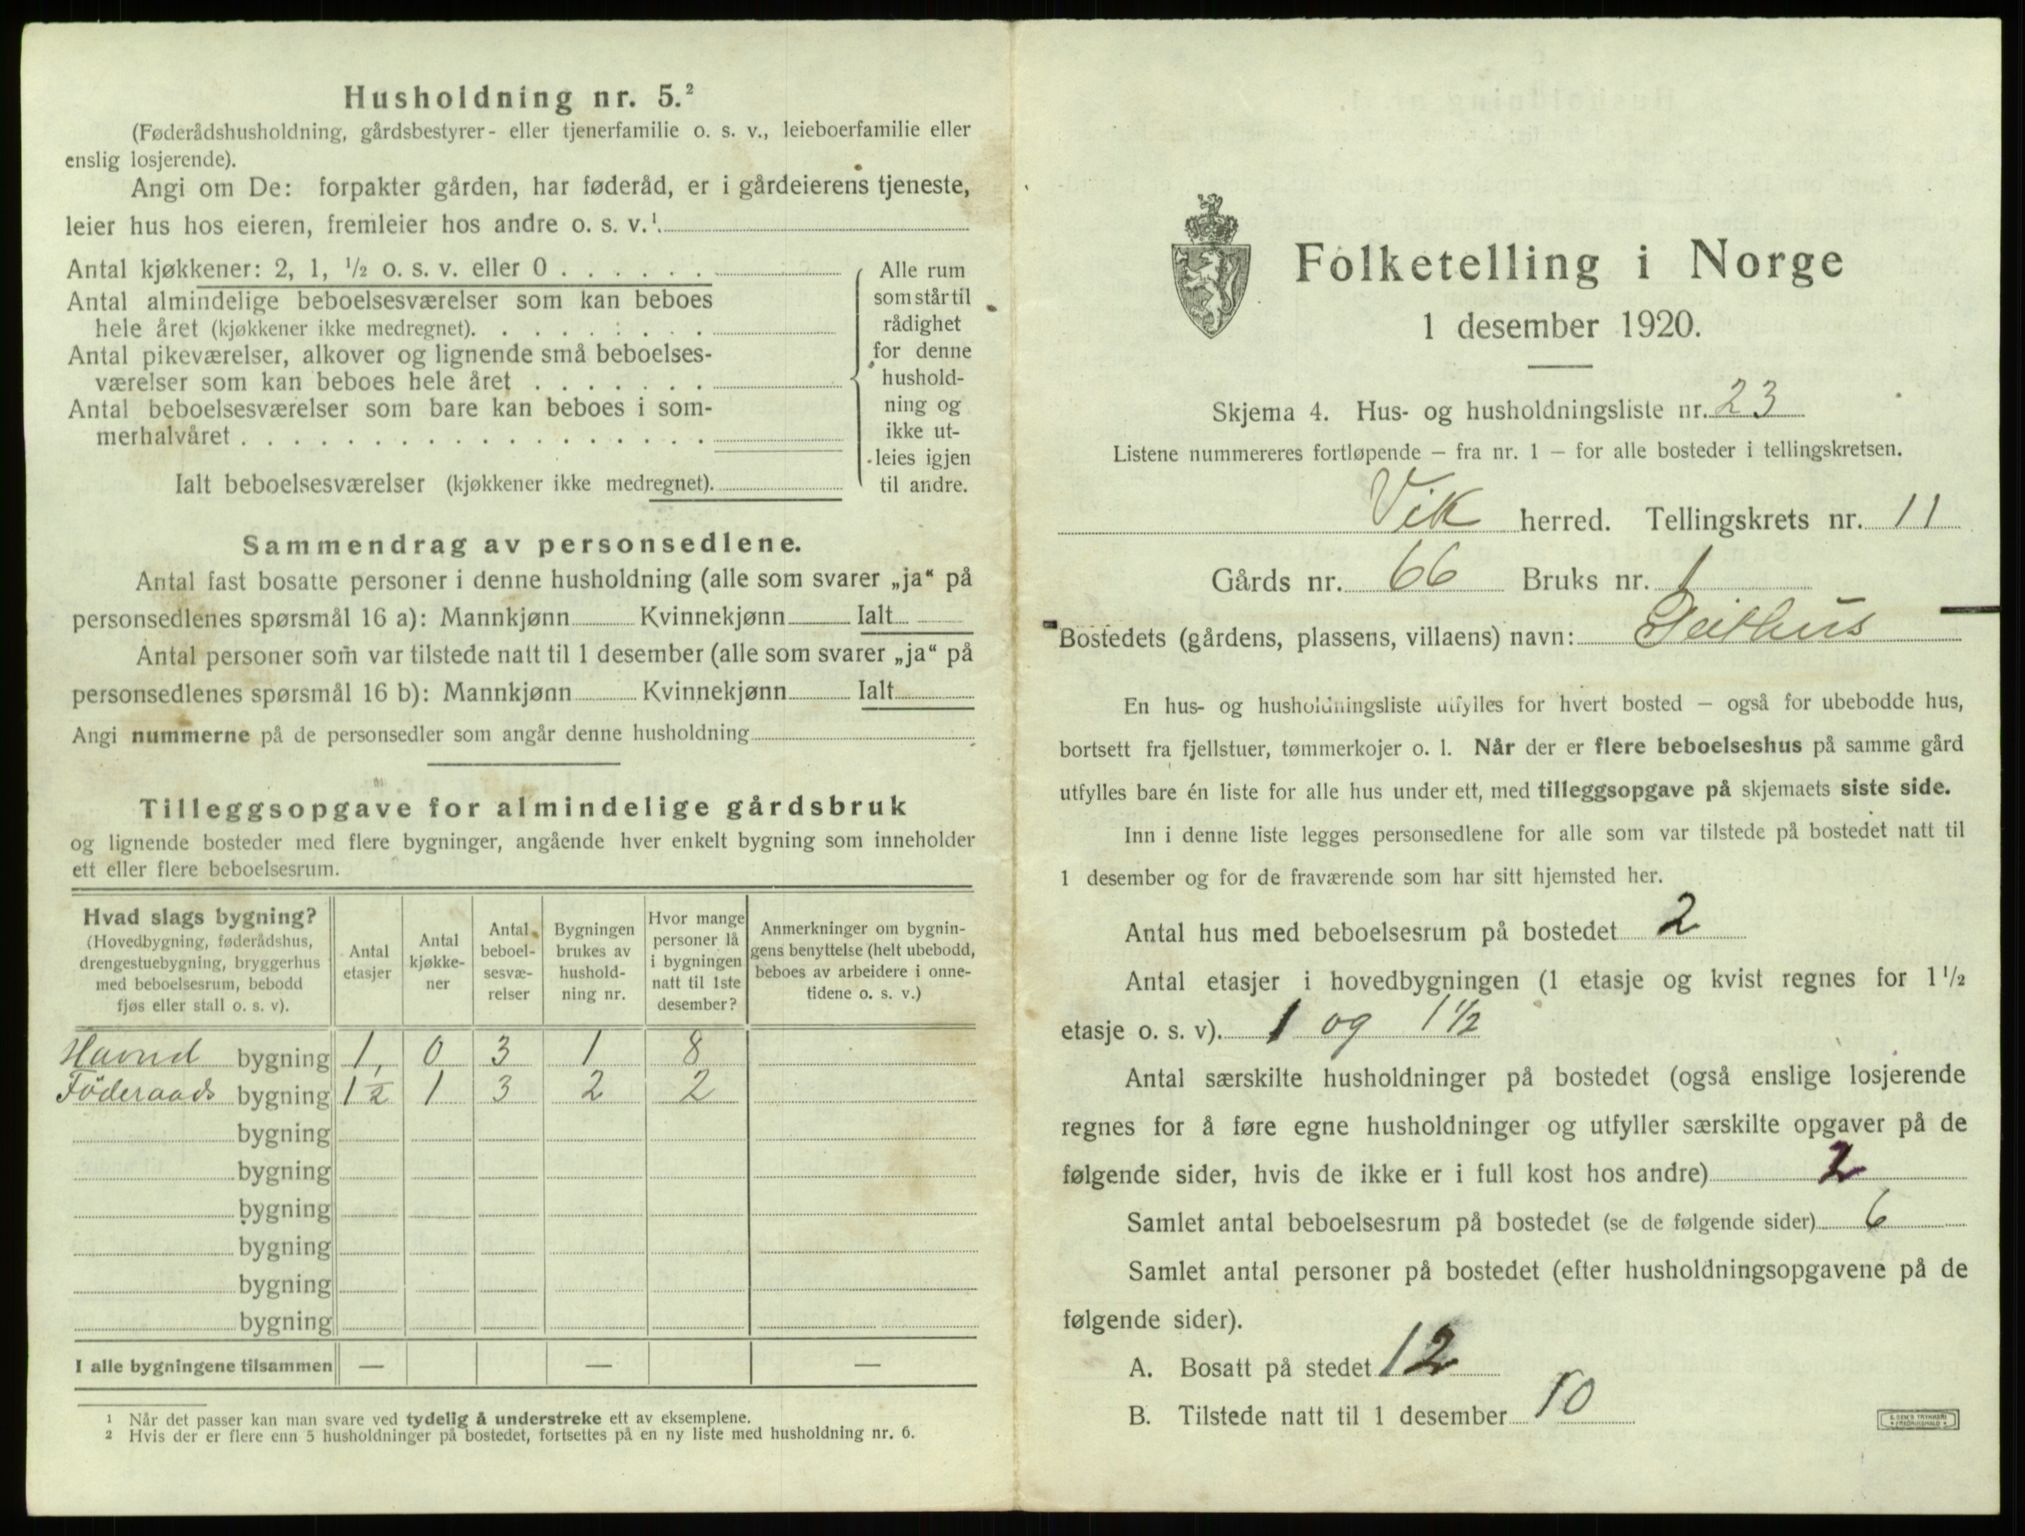 Husholdning nr. 5.²
(Føderådshusholdning, gårdsbestyrer- eller tjenerfamilie o. s. v., leieboerfamilie eller
enslig losjerende).
Angi om De: forpakter gården, har føderåd, er i gårdeierens tjeneste,
leier hus hos eieren, fremleier hos andre o. s. v.¹
Antal kjøkkener: 2, 1, ½ o. s. v. eller 0
Antal almindelige beboelsesværelser som kan beboes
hele året (kjøkkener ikke medregnet).
Antal pikeværelser, alkover og lignende små beboelses-
værelser som kan beboes hele året
Antal beboelsesværelser som bare kan beboes i som-
merhalvåret
Ialt beboelsesværelser (kjøkkener ikke medregnet).
Alle rum
som står til
rådighet
for denne
hushold-
ning og
ikke ut-
leies igjen
til andre.
Sammendrag av personsedlene.
Antal fast bosatte personer i denne husholdning (alle som svarer „ja“ på
personsedlenes spørsmål 16 a): Mannkjønn Kvinnekjønn Ialt
Antal personer som var tilstede natt til 1 desember (alle som svarer „ja“ på
personsedlenes spørsmål 16 b): Mannkjønn Kvinnekjønn Ialt
Angi nummerne på de personsedler som angår denne husholdning
Tilleggsopgave for almindelige gårdsbruk
og lignende bosteder med flere bygninger, angående hver enkelt bygning som inneholder
ett eller flere beboelsesrum.
Hvad slags bygning?
(Hovedbygning, føderådshus,
drengestuebygning, bryggerhus
med beboelsesrum, bebodd
fjøs eller stall o. s. v).
Antal
etasjer
Antal
kjøkke-
ner
Antal
beboel-
sesvæ-
relser
Bygningen
brukes av
hushold-
ning nr.
Hvor mange
personer lå
i bygningen
natt til 1ste
desember?
Anmerkninger om bygnin-
gens benyttelse (helt ubebodd,
beboes av arbeidere i onne-
tidene o. s. v.)
Havud bygning 1, 0 3 1 8
Föderaads bygning 1½ 1 3 2 2
bygning
bygning
bygning
bygning
bygning
bygning
I alle bygningene tilsammen — — —
¹ Når det passer kan man svare ved tydelig å understreke ett av eksemplene.
² Hvis der er flere enn 5 husholdninger på bostedet, fortsettes på en ny liste med husholdning nr. 6.
Folketelling i Norge
1 desember 1920.
Skjema 4. Hus- og husholdningsliste nr. 23
Listene nummereres fortløpende – fra nr. 1 – for alle bosteder i tellingskretsen.
Vik herred. Tellingskrets nr. 11
Gårds nr. 66 Bruks nr. 1
Bostedets (gårdens, plassens, villaens) navn: Seithus
En hus- og husholdningsliste utfylles for hvert bosted – også for ubebodde hus,
bortsett fra fjellstuer, tømmerkojer o. l. Når der er flere beboelseshus på samme gård
utfylles bare én liste for alle hus under ett, med tilleggsopgave på skjemaets siste side.
Inn i denne liste legges personsedlene for alle som var tilstede på bostedet natt til
1 desember og for de fraværende som har sitt hjemsted her.
Antal hus med beboelsesrum på bostedet 2
Antal etasjer i hovedbygningen (1 etasje og kvist regnes for 1½
etasje o. s. v). 1 og 1½
Antal særskilte husholdninger på bostedet (også enslige losjerende
regnes for å føre egne husholdninger og utfyller særskilte opgaver på de
følgende sider, hvis de ikke er i full kost hos andre) 2
Samlet antal beboelsesrum på bostedet (se de følgende sider) 6
Samlet antal personer på bostedet (efter husholdningsopgavene på de
følgende sider).
A. Bosatt på stedet 12
B. Tilstede natt til 1 desember 10